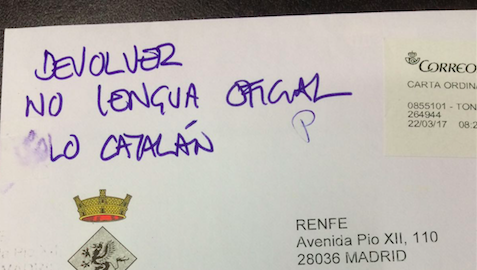 DEVOLVER
NO LENGUA OFICIAL
SOLO CATALÁN
P
CORREO
CARTA ORDINA
0855101 - TON
264944
22/03/17 08:2
RENFE
Avenida Pio XII, 110
28036 MADRID